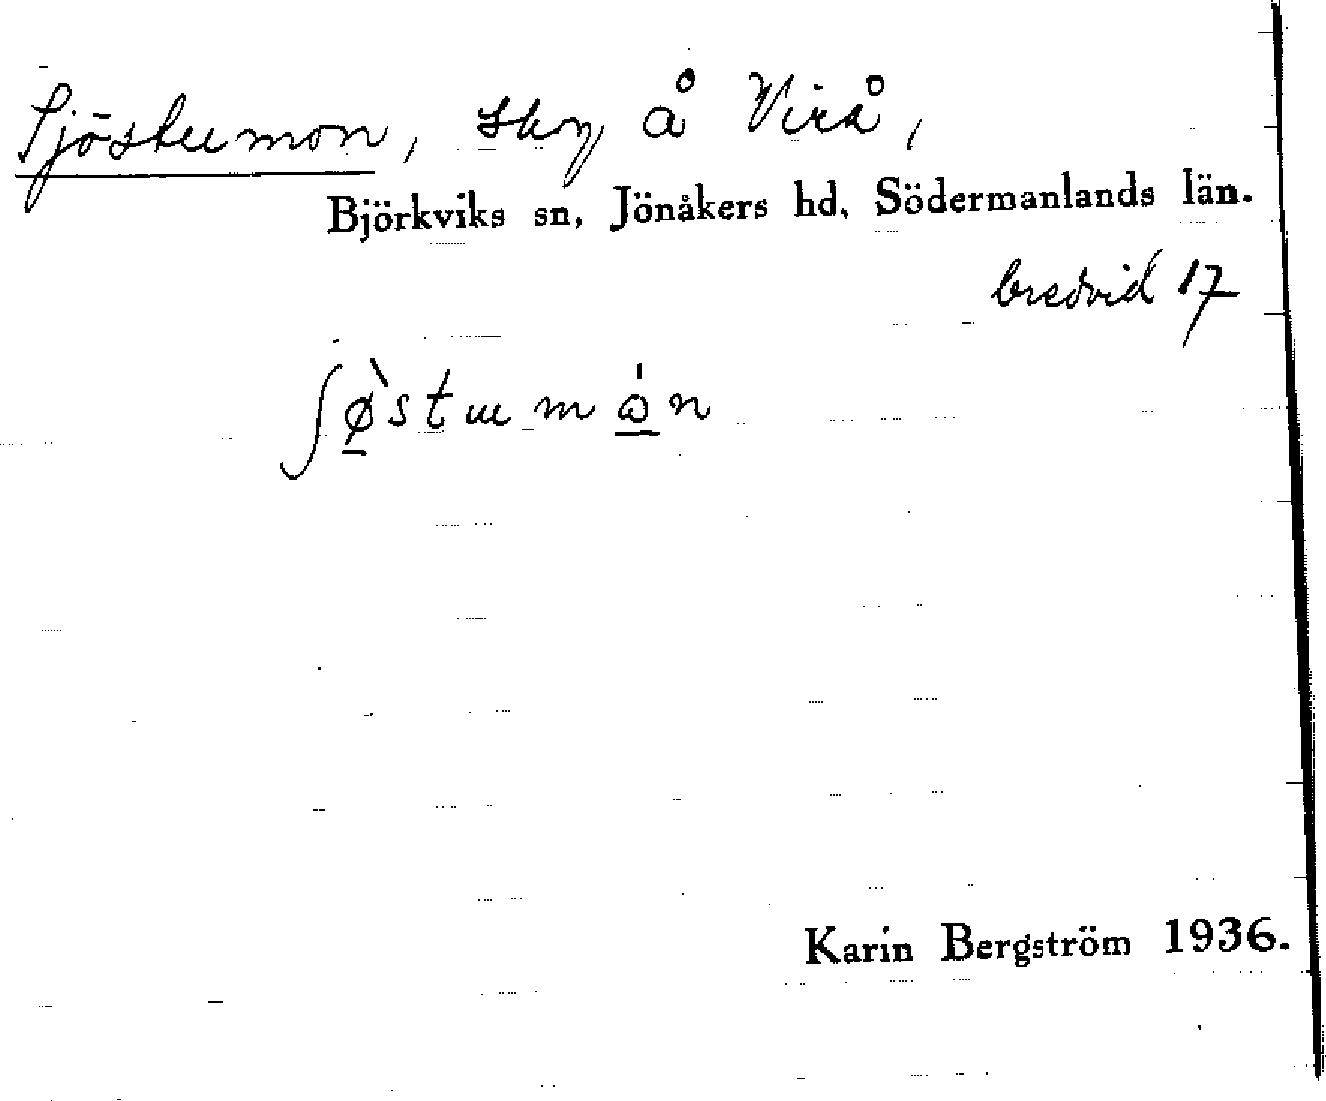 Sjöstumon, skog å Virå,
Björkviks sn, Jönåkers hd, Södermanlands län.
bredvid 17
Karin Bergström 1936.